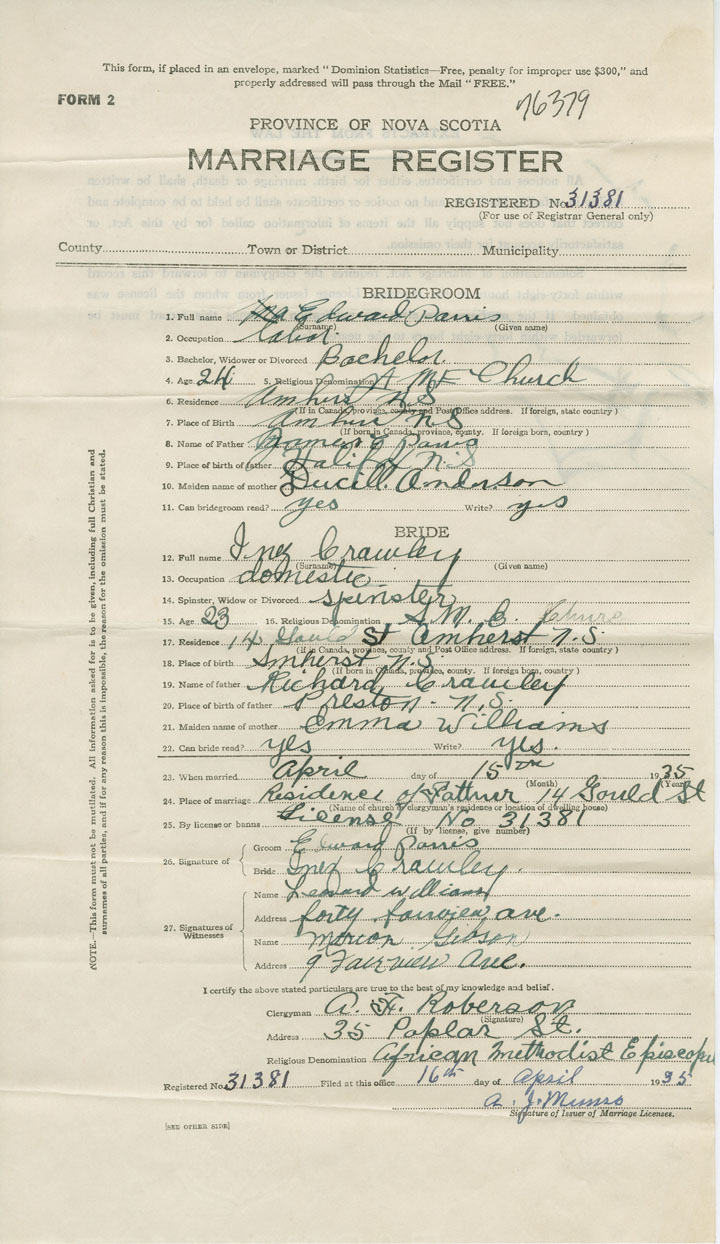 This form, if placed in an envelope, marked "Dominion Statistics—Free, penalty for improper use $300," and
properly addressed will pass through the Mail "FREE."
FORM 2
76379
PROVINCE OF NOVA SCOTIA
MARRIAGE REGISTER
REGISTERED No. 31381
(For use of Registrar General only)
County Town or District Municipality
BRIDEGROOM
1. Full name Edward Parris
(Surname) (Given name)
2. Occupation Labor
3. Bachelor, Widower or Divorced Bachelor
4. Age 24 5. Religious Denomination A M E Church
6. Residence Amherst N S
(If in Canada, province, county and Post Office address. If foreign, state country)
7. Place of Birth Amherst N.S
(If born in Canada, province, county. If foreign born, country)
8. Name of Father James Parris
9. Place of birth of father Halifax N.S
10. Maiden name of mother Anderson
11. Can bridegroom read? yes Write? yes
BRIDE
12. Full name Inez Crawley
(Surname) (Given name)
13. Occupation domestic
14. Spinster, Widow or Divorced spinster
15. Age 23 16. Religious Denomination M. E.
17. Residence 14 Gould St Amherst N.S.
(If in Canada, province, county and Post Office address. If foreign, state country)
18. Place of birth Amherst N.S.
(If born in Canada, province, county. If foreign born, country)
19. Name of father Richard Crawley
20. Place of birth of father Preston - N.S.
21. Maiden name of mother Emma Williams
22. Can bride read? yes Write? yes.
23. When married April day of 15th 1935
(Month) (Year)
24. Place of marriage Residence of 14 Gould St
(Name of church, clergyman's residence or location of dwelling house)
25. By license or banns License No 31381
(If by license, give number)
26. Signature of
Groom Edward Parris
Bride Inez Crawley.
27. Signatures of Witnesses
Name Leonard williams
Address forty fairview ave.
Name Marion Gibson
Address 9 Fairview Ave.
I certify the above stated particulars are true to the best of my knowledge and belief.
Clergyman A. F. Roberson
(Signature)
Address 35 Poplar St.
Religious Denomination African Methodist Episcopal
Registered No. 31381 Filed at this office 16th day of April 1935
A. J. Munro
Signature of Issuer of Marriage Licenses.
[SEE OTHER SIDE]
NOTE.—This form must not be mutilated. All information asked for is to be given, including full Christian and
surnames of all parties, and if for any reason this is impossible, the reason for the omission must be stated.